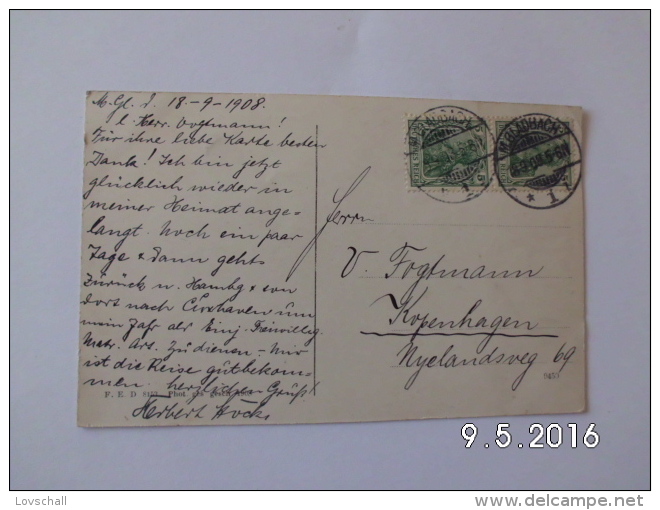 M. Gl. d. 18-9-1908.
l. Herr Vogtmann!
Für ihre liebe Karte besten
Dank! Ich bin jetzt
glücklich wieder in
meiner Heimat ange-
langt. Noch ein paar
Tage & dann gehts
Zurück n. Hambg & von
dort nach Cuxhaven um
mein Jahr als Einj. Freiwillig.
Matr. Art. zu dienen. - Mir
ist die Reise gut bekom-
men. herzlichen Gruß!
F. E. D Phot. ges. gesch.
Herbert
Herrn
V. Fogtmann
Kopenhagen
Nyelandsvej 69
9.5.2016
Lovschall
www.delcampe.net